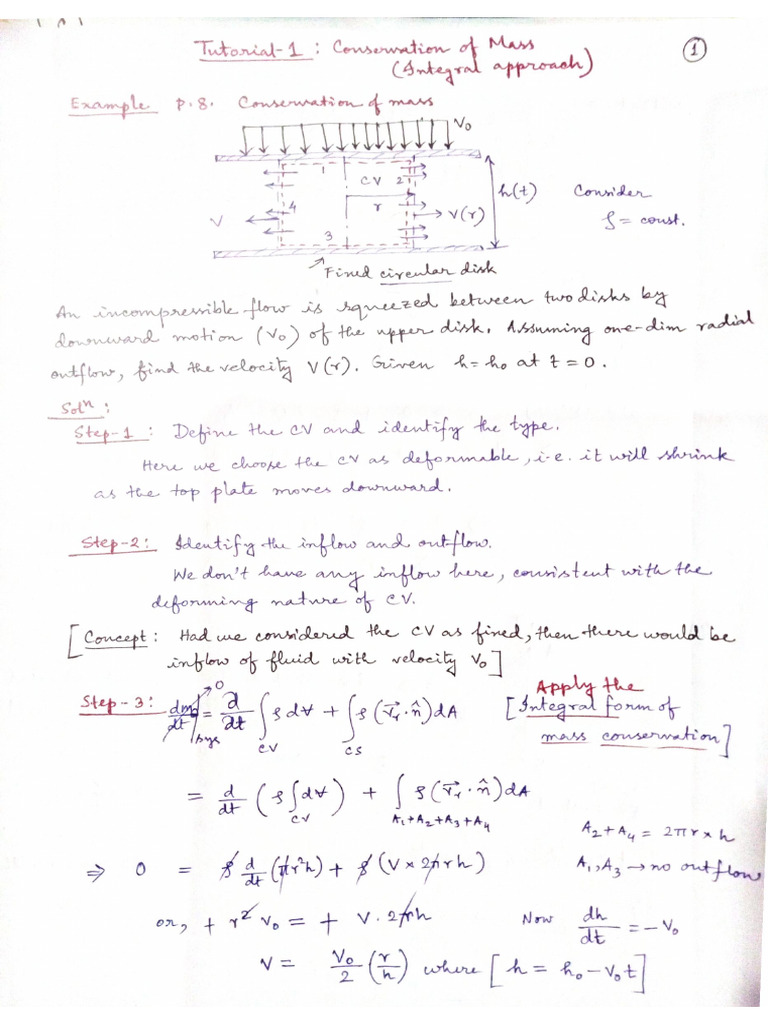 Tutorial-1 : Conservation of Mass
(Integral approach)
1
Example P.8. Conservation of mass
V₀
1
CV 2
h(t)
Consider
r
4
V
V(r)
ρ = const.
3
Fixed circular disk
An incompressible flow is squeezed between two disks by
downward motion (V₀) of the upper disk. Assuming one-dim radial
outflow, find the velocity V(r). Given h = h₀ at t = 0.
Solⁿ :
Step-1 : Define the CV and identify the type.
Here we choose the CV as deformable, i.e. it will shrink
as the top plate moves downward.
Step-2: Identify the inflow and outflow.
We don't have any inflow here, consistent with the
deforming nature of CV.
[Concept : Had we considered the CV as fixed, then there would be
inflow of fluid with velocity V₀]
Step-3 : dm/dt|sys → 0 = d/dt ∫_CV ρ d∀ + ∫_CS ρ (V⃗r·n̂) dA
Apply the
[Integral form of
mass conservation]
= d/dt (ρ∫_CV d∀) + ∫_A₁+A₂+A₃+A₄ ρ (V⃗r·n̂) dA
A₂ + A₄ = 2πr × h
⇒ 0 = ρ d/dt (πr²h) + ρ (V × 2πrh)
A₁, A₃ → no outflow
or, + r² V₀ = + V. 2rh
Now dh/dt = − V₀
V = V₀/2 (r/h) where [h = h₀ − V₀t]